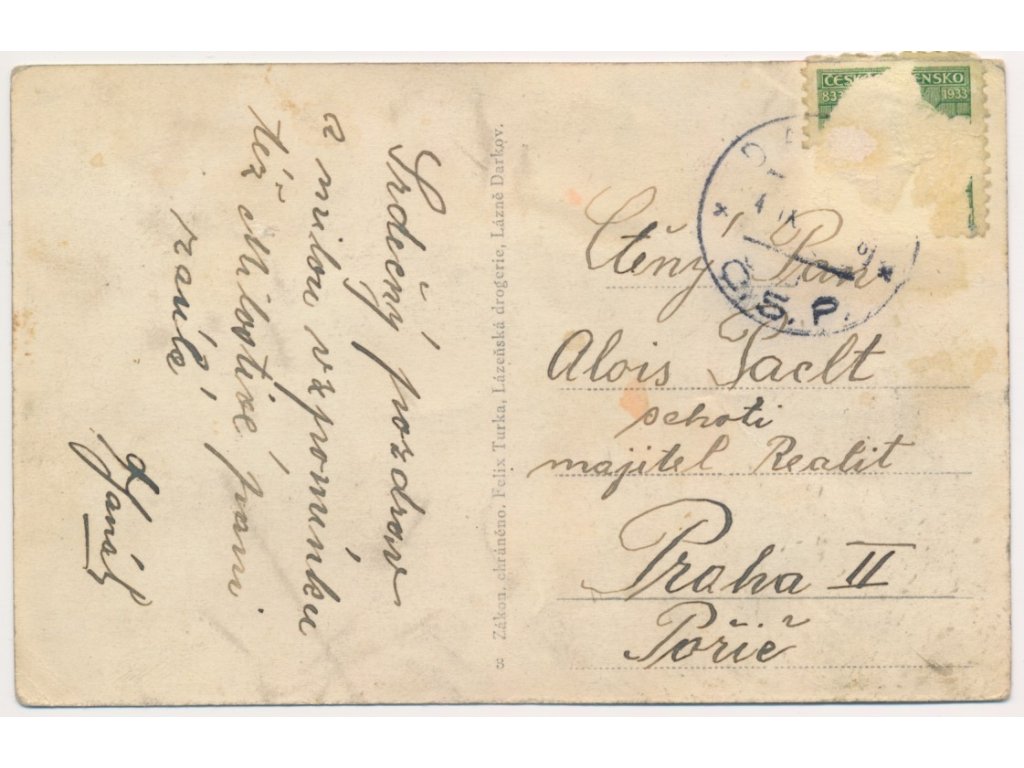 Srdečný pozdrav
a milou vzpomínku
též Milostivé paní
zaslé
Zákon. chráněno. Felix Turka, Lázeňská drogerie, Lázně Darkov.
8
ČESK ENSKO
833 1933
4 IX
O.S.P.
Ctěný Pan
Alois Paclt
majitel Realit
Praha II
Pořič